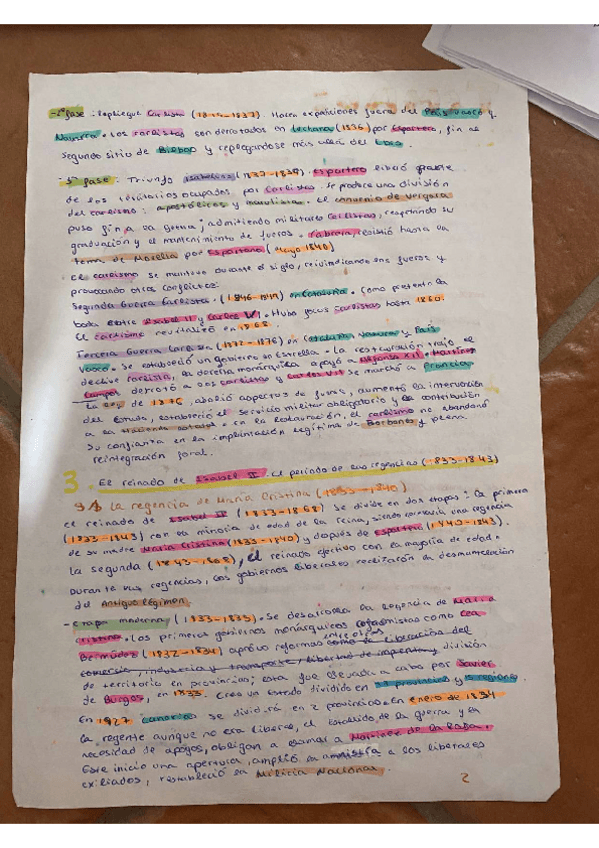 -2ªfase: Repliegue Carlista (1836-1837). Hacen expediciones fuera del País vasco y
Navarra. Los carlistas son derrotados en Luchana (1836) por Espartero, fin al
Segundo sitio de Bilbao y replegandose más allá del Ebro.
-3ªfase: Triunfo Isabelino (1837-1839) Espartero liberó grande
de los territorios ocupados por Carlistas. Se produce una división
del carlismo: apostólicos y marotistas. El convenio de Vergara
puso fin a la guerra; admitiendo militares Carlistas, respetando su
graduación y el mantenimiento de fueros. Cabrera, resistió hasta la
toma de Morella por Espartero (mayo 1840)
El carlismo se mantuvo durante el siglo, reivindicando sus fueros y
provocando otros conflictos:
Segunda Guerra Carlista. (1846-1849) en Cataluña. Como pretexto la
boda entre Isabel II y Carlos VI. Hubo focos carlistas hasta 1860.
El carlismo revitalizó en 1868.
Tercera Guerra Carlista (1872-1876) en Cataluña, Navarra y País
Vasco. Se estableció un gobierno en Estrella. La restauración trajo el
declive carlista, la derecha monárquica apoyó a Alfonso XII. Martínez
Campos derrotó a los carlistas y Carlos VII se marchó a Francia
La ley de 1876, abolió aspectos de fueros, aumentó la intervención
del Estado, estableció el servicio militar obligatorio y la contribución
a la Hacienda estatal. En la Restauración, el carlismo no abandonó
su confianza en la implantación legítima de Borbones y plena
reintegración foral.
3. El reinado de Isabel II. El periodo de sus regencias (1833-1843)
La regencia de María Cristina (1833-1840)
El reinado de Isabel II (1833-1868) se divide en dos etapas: La primera
(1833-1843) con la minoría de edad de la reina, siendo una regencia
de su madre María Cristina (1833-1840) y después de Espartero (1840-1843).
La segunda (1843-1868), el reinado efectivo con la mayoría de edad.
Durante sus regencias, los gobiernos liberales realizaron la desmantelación
del Antiguo Régimen
-etapa moderna (1833-1835). Se desarrolla la Regencia de María
Cristina. Los primeros gobiernos monárquicos reformistas como Cea
Bermúdez (1832-1834) aprobó reformas entre otras como la liberación del
comercio, industria y transporte, libertad de imprenta y división
de territorio en provincias; esta fue llevada a cabo por Javier
de Burgos, en 1833. Crea un Estado dividido en provincias y regiones
En 1927 Canarias se dividirá en 2 provincias. En enero de 1834
la regente aunque no era liberal, el estallido de la guerra y la
necesidad de apoyos, obligan a llamar a Martínez de la Rosa.
Este inició una apertura, amplió la amnistía a los liberales
exiliados, restableció la Milicia Nacional.
2